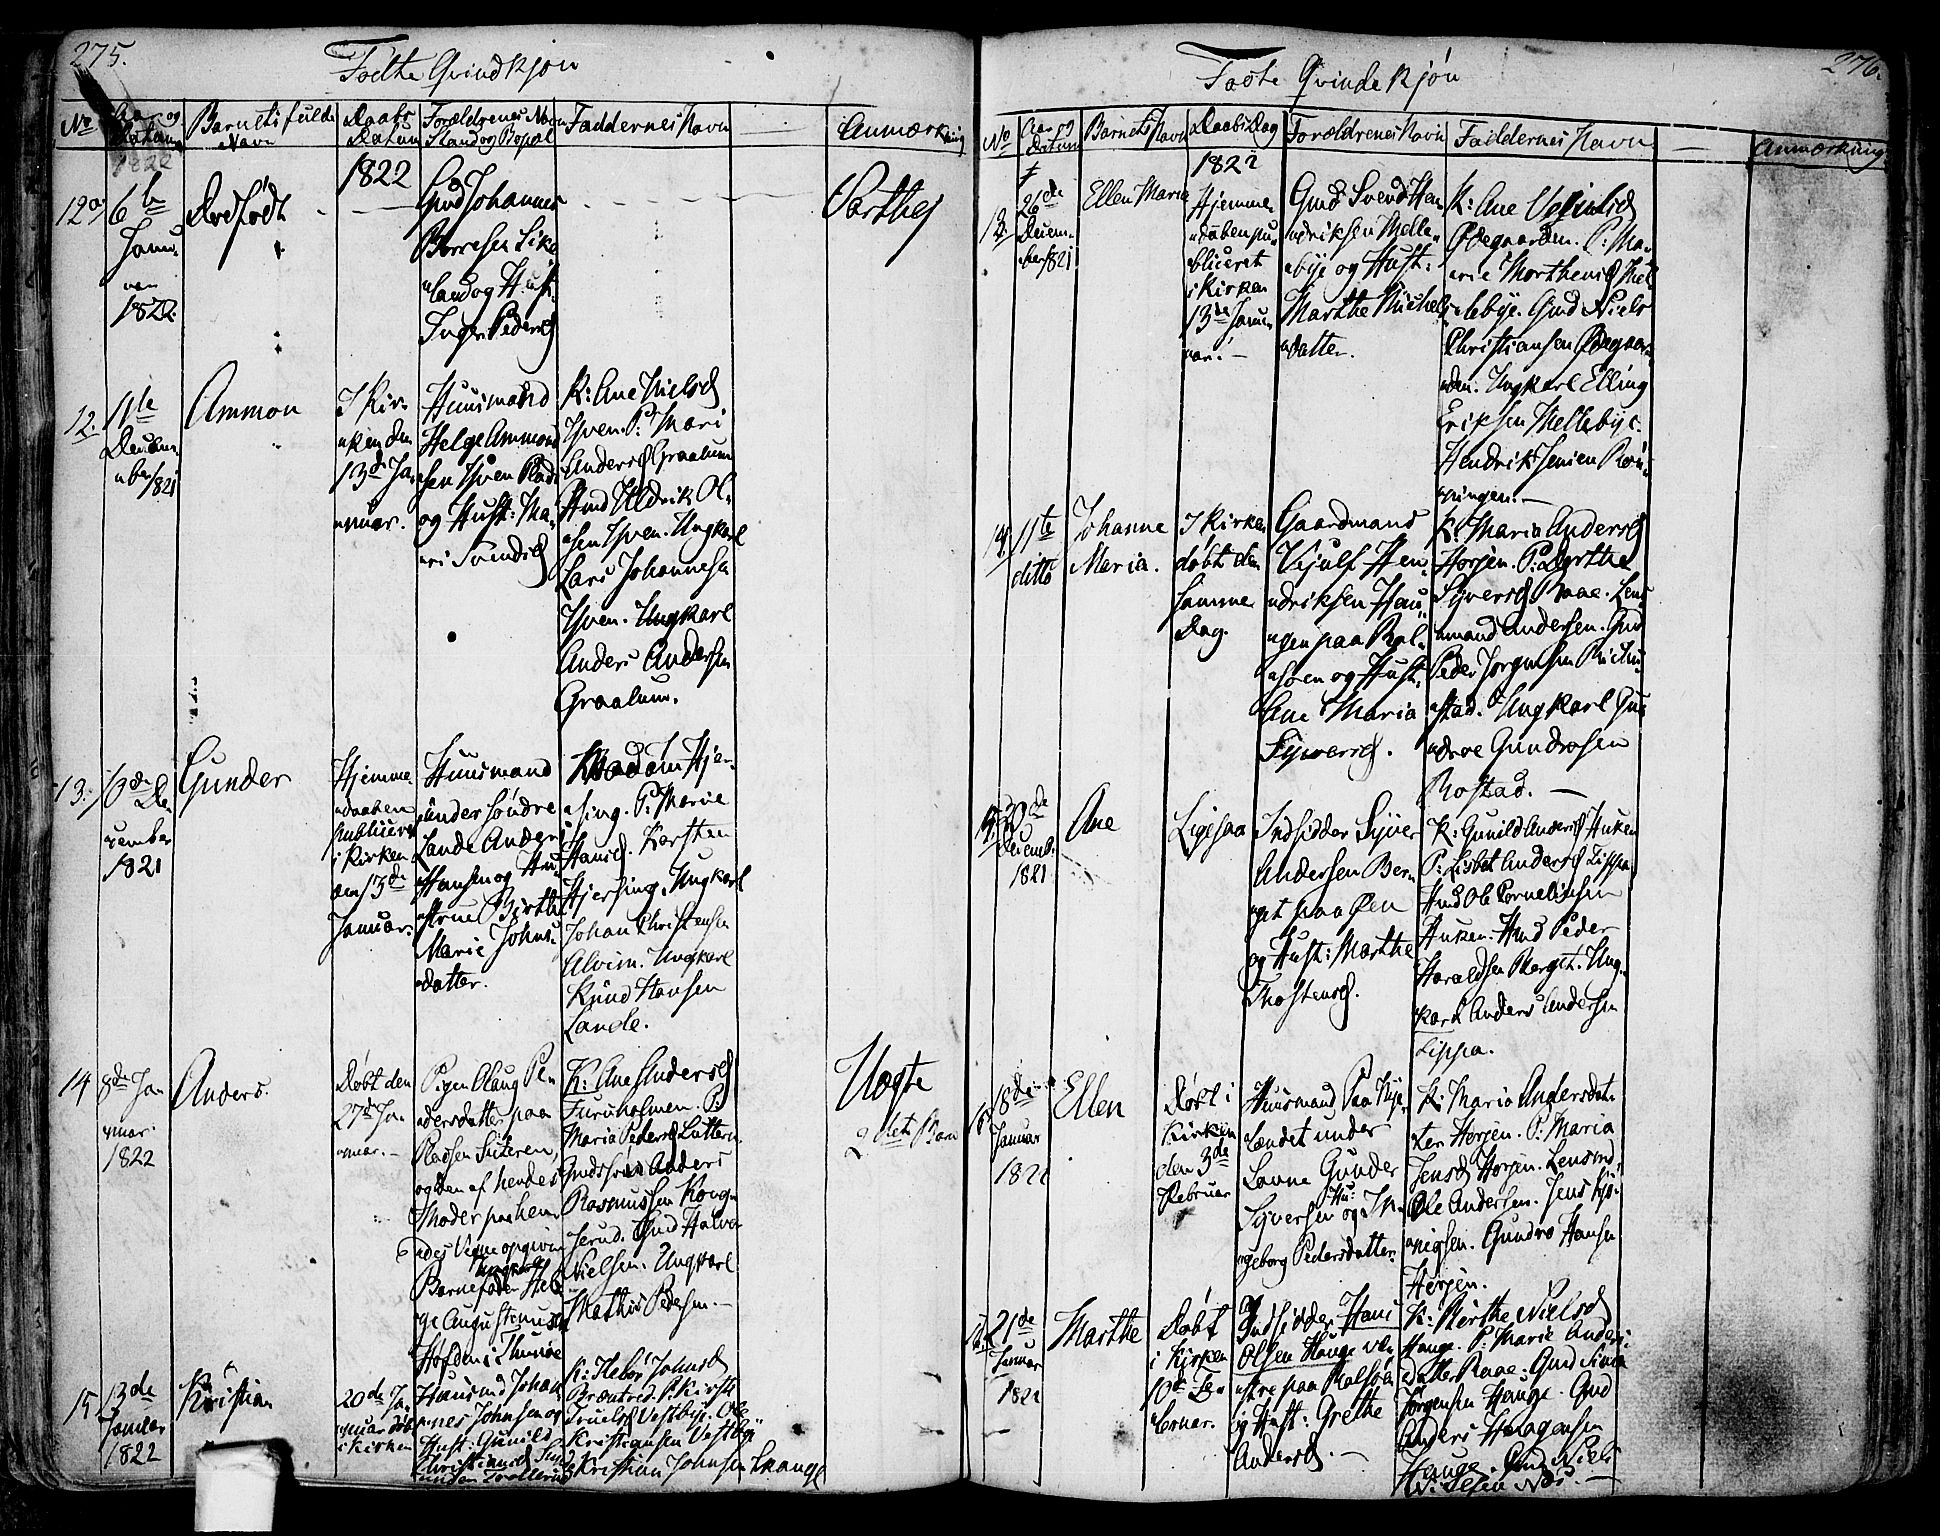 275.
Fødte Qvindkjøn
No
Aar og Datum
Barnets fulde Navn
Daabs Datum
Forældrenes Navn Stand og Bopæl
Faddernes Navn
Anmærkning
1822
1822
12a
6te
Janu-
1822
Dødfødt
Gmd Johannes
Borresen
land og Hust.
Inger Pedersd
12.
11te
Decem-
ber 1821
Ammon
I Kir-
ken den
13de Ja-
nuar.
Huusmand
Helge Ammond
sen Hven Plads
og Hust: Ma-
ri Svendsd
K: Ane Nielsd
Hven. P: Mari
Andersd Graalum
Hmd Uldrik Ol-
sen Hven. Ungkarl
Lars Johannesen
Hven. Ungkarl
Anders Andersen
Graalum.
13.
10de De
cember
1821
Gunder
Hjemme
daaben
publiceret
i Kirken
den 13de
Januar.
Huusmand
under søndre
Lande Anders
Hansen og Hu-
strue Birthe
Marie Johns-
datter.
Madam Hjer-
sing. P: Marie
Hansd. Karsten
Hjersing. Ungkarl
Johan Christensen
Alvim. Ungkarl
Knud Hansen
Lande.
14
8de Ja
nuar.
1822
Anders.
Døbt den
27de Ja-
nuar.
Pigen Olaug Pe-
dersdatter paa
Pladsen
og den af hendes
Moder paa hen-
des Vegne opgivne
Barnefader Ungkarl Hel-
ge Augustinusen
Høfden i Thunøe
K: Ane Andersd
Furuholmen. P:
Maria Pedersd
Gmdssøn Anders
Rasmussen Kong-
serud. Gmd Halvor
Nielsen. Ungkarl
Mathis Pedersen.
Uægte
2det Barn
15
13de
Januar
1822
Kristian
20de Ja-
nuar døbt
i Kirken
Huusmd Johan-
nes Johnsen og
Hust: Gunild
Christiansd
under
K: Johnsd
P: Kirsti
Truelsd Vestbye. Ole
Kristiansen Vestbye
Kristian Johnsen
276.
Fødte Qvindekjøn
No
Aar og Datum
Barnets Navn
Daabs Dag
Forældrenes Navn
Faddernes Navn
Anmærkning
1822
13.
26de
Decem-
ber 1821
Ellen Maria
Hjemme-
daaben pu-
bliceret
i Kirken
13de Janu-
ar.
Gmd Svend Hen-
driksen Melle-
bye og Hust:
Marthe Michels-
datter.
K: Ane
Ødegaarden. P: Ma-
rie Morthensd Mel-
lebye. Gmd Niels
Christiansen Ødegaar-
den. Ungkarl Elling
Eriksen Mellebye.
Hendrik Jensen Røn-
ningen.
14.
11te
ditto
Johanne
Maria.
I Kirken
døbt den
samme
Dag.
Gaardmand
Hen-
driksen Hau-
gen paa Rol-
søen og Hust:
Ane Maria
Syversd.
K: Maria Andersd
Horjen. P: Dorthe
Syversd Raae. Lens-
mand Andersen. Gmd
Peder Jørgensen
stad. Ungkarl Gun-
droe Gundrosen
Rostad.
15.
30de
Decemb.
1821
Ane
Ligesaa
Indsidder Syver
Andersen Ber-
get paa Øen
og Hust: Marthe
Thostensd.
K: Gunild Andersd Huken
P: Lisbet Andersd Lippa
Hmd Ole Cornelissen
Huken. Hmd Peder
Haraldsen Berget. Ung-
karl Anders Andersen
Lippa.
16
8de
Januar
1822
Ellen
Døbt i
Kirken
den 3de
Februar
Huusmand Paa
landet under
Lovne Gunder
Syversen og Hu: In-
geborg Pedersdatter.
K: Maria Andersdat-
ter Horjen. P: Maria
Jensd Horjen. Lensmd
Ole Andersen. Jens
Gundro Hansen
Horjen.
21de
Januar
1822
Marthe
Døbt
i Kirken
10de Fe-
bruar.
Indsidder Hans
Olsen Hauge væ-
stre paa Rolsøe
og Hust: Grethe
Andersd.
K: Berthe Nielsd
Hauge. P: Marie Anders-
datter Raae. Gmd Simon
Jørgensen Hauge. Gmd
Anders Haagensen
Hauge. Gmd Niels